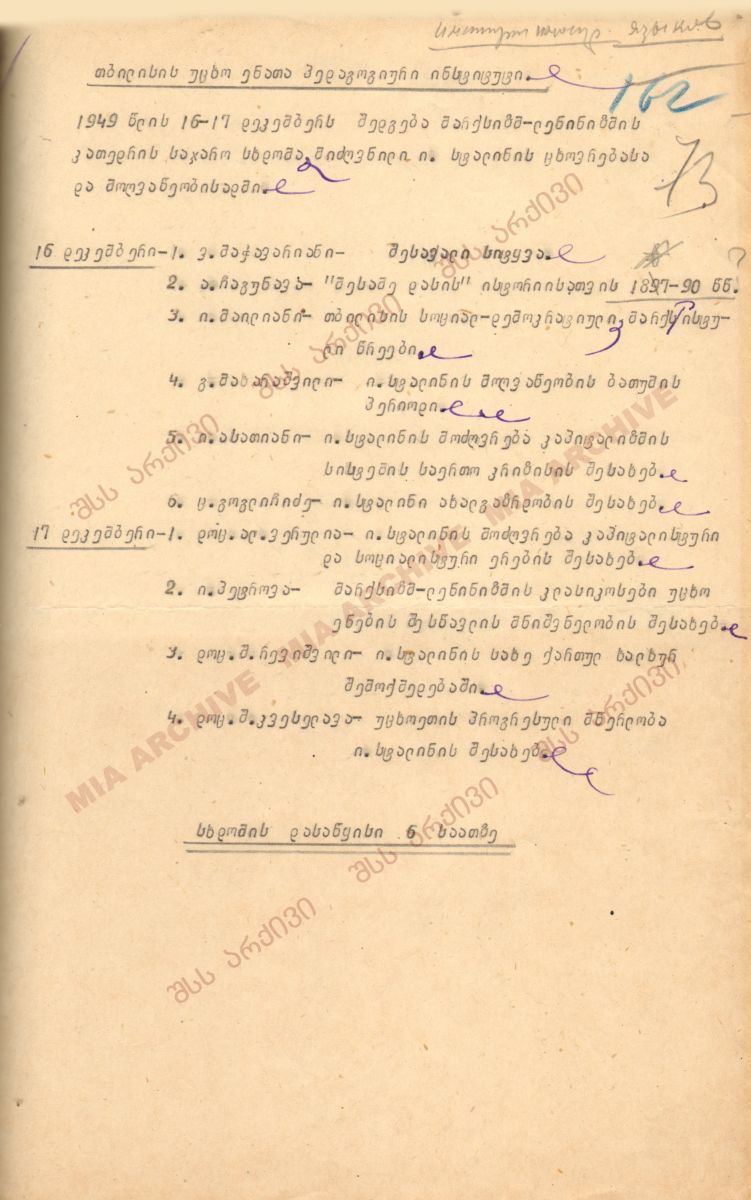 162
თბილისის უცხო ენათა პედაგოგიური ინსტიტუტი.
73
1949 წლის 16-17 დეკემბერს შედგება მარქსიზმ-ლენინიზმის
კათედრის საჯარო სხდომა, მიძღვნილი ი. სტალინის ცხოვრებასა
და მოღვაწეობისადმი.
16 დეკემბერი-1. ვ.მაჭავარიანი- შესავალი სიტყვა.
2. ა.ჩაგუნავა- "მესამე დასის" ისტორიისათვის 1827-90 წწ. ?
3. ი.მაილიანი- თბილისის სოციალ-დემოკრატიული, მარქსისტუ-
ლი წრეები.
4. გ.მახარაშვილი- ი.სტალინის მოღვაწეობის ბათუმის
პერიოდი.
5. ი.ასათიანი- ი.სტალინის მოძღვრება კაპიტალიზმის
სისტემის საერთო კრიზისის შესახებ.
6. ც.გოგლიჩიძე- ი.სტალინი ახალგაზრდობის შესახებ.
17 დეკემბერი-1. დოც.ალ.ვერულია- ი.სტალინის მოძღვრება კაპიტალისტური
და სოციალისტური ერების შესახებ.
2. ი.პეტროვა- მარქსიზმ-ლენინიზმის კლასიკოსები უცხო
ენების შესწავლის მნიშვნელობის შესახებ.
3. დოც.შ.რევიშვილი- ი.სტალინის სახე ქართულ ხალხურ
შემოქმედებაში.
4. დოც.შ.კვესელავა- უცხოეთის პროგრესული მწერლობა
ი.სტალინის შესახებ.
სხდომის დასაწყისი 6 საათზე
შსს არქივი
შსს არქივი
შსს არქივი
MIA ARCHIVE
MIA ARCHIVE
MIA ARCHIVE
შსს არქივი
შსს არქივი
შსს არქივი